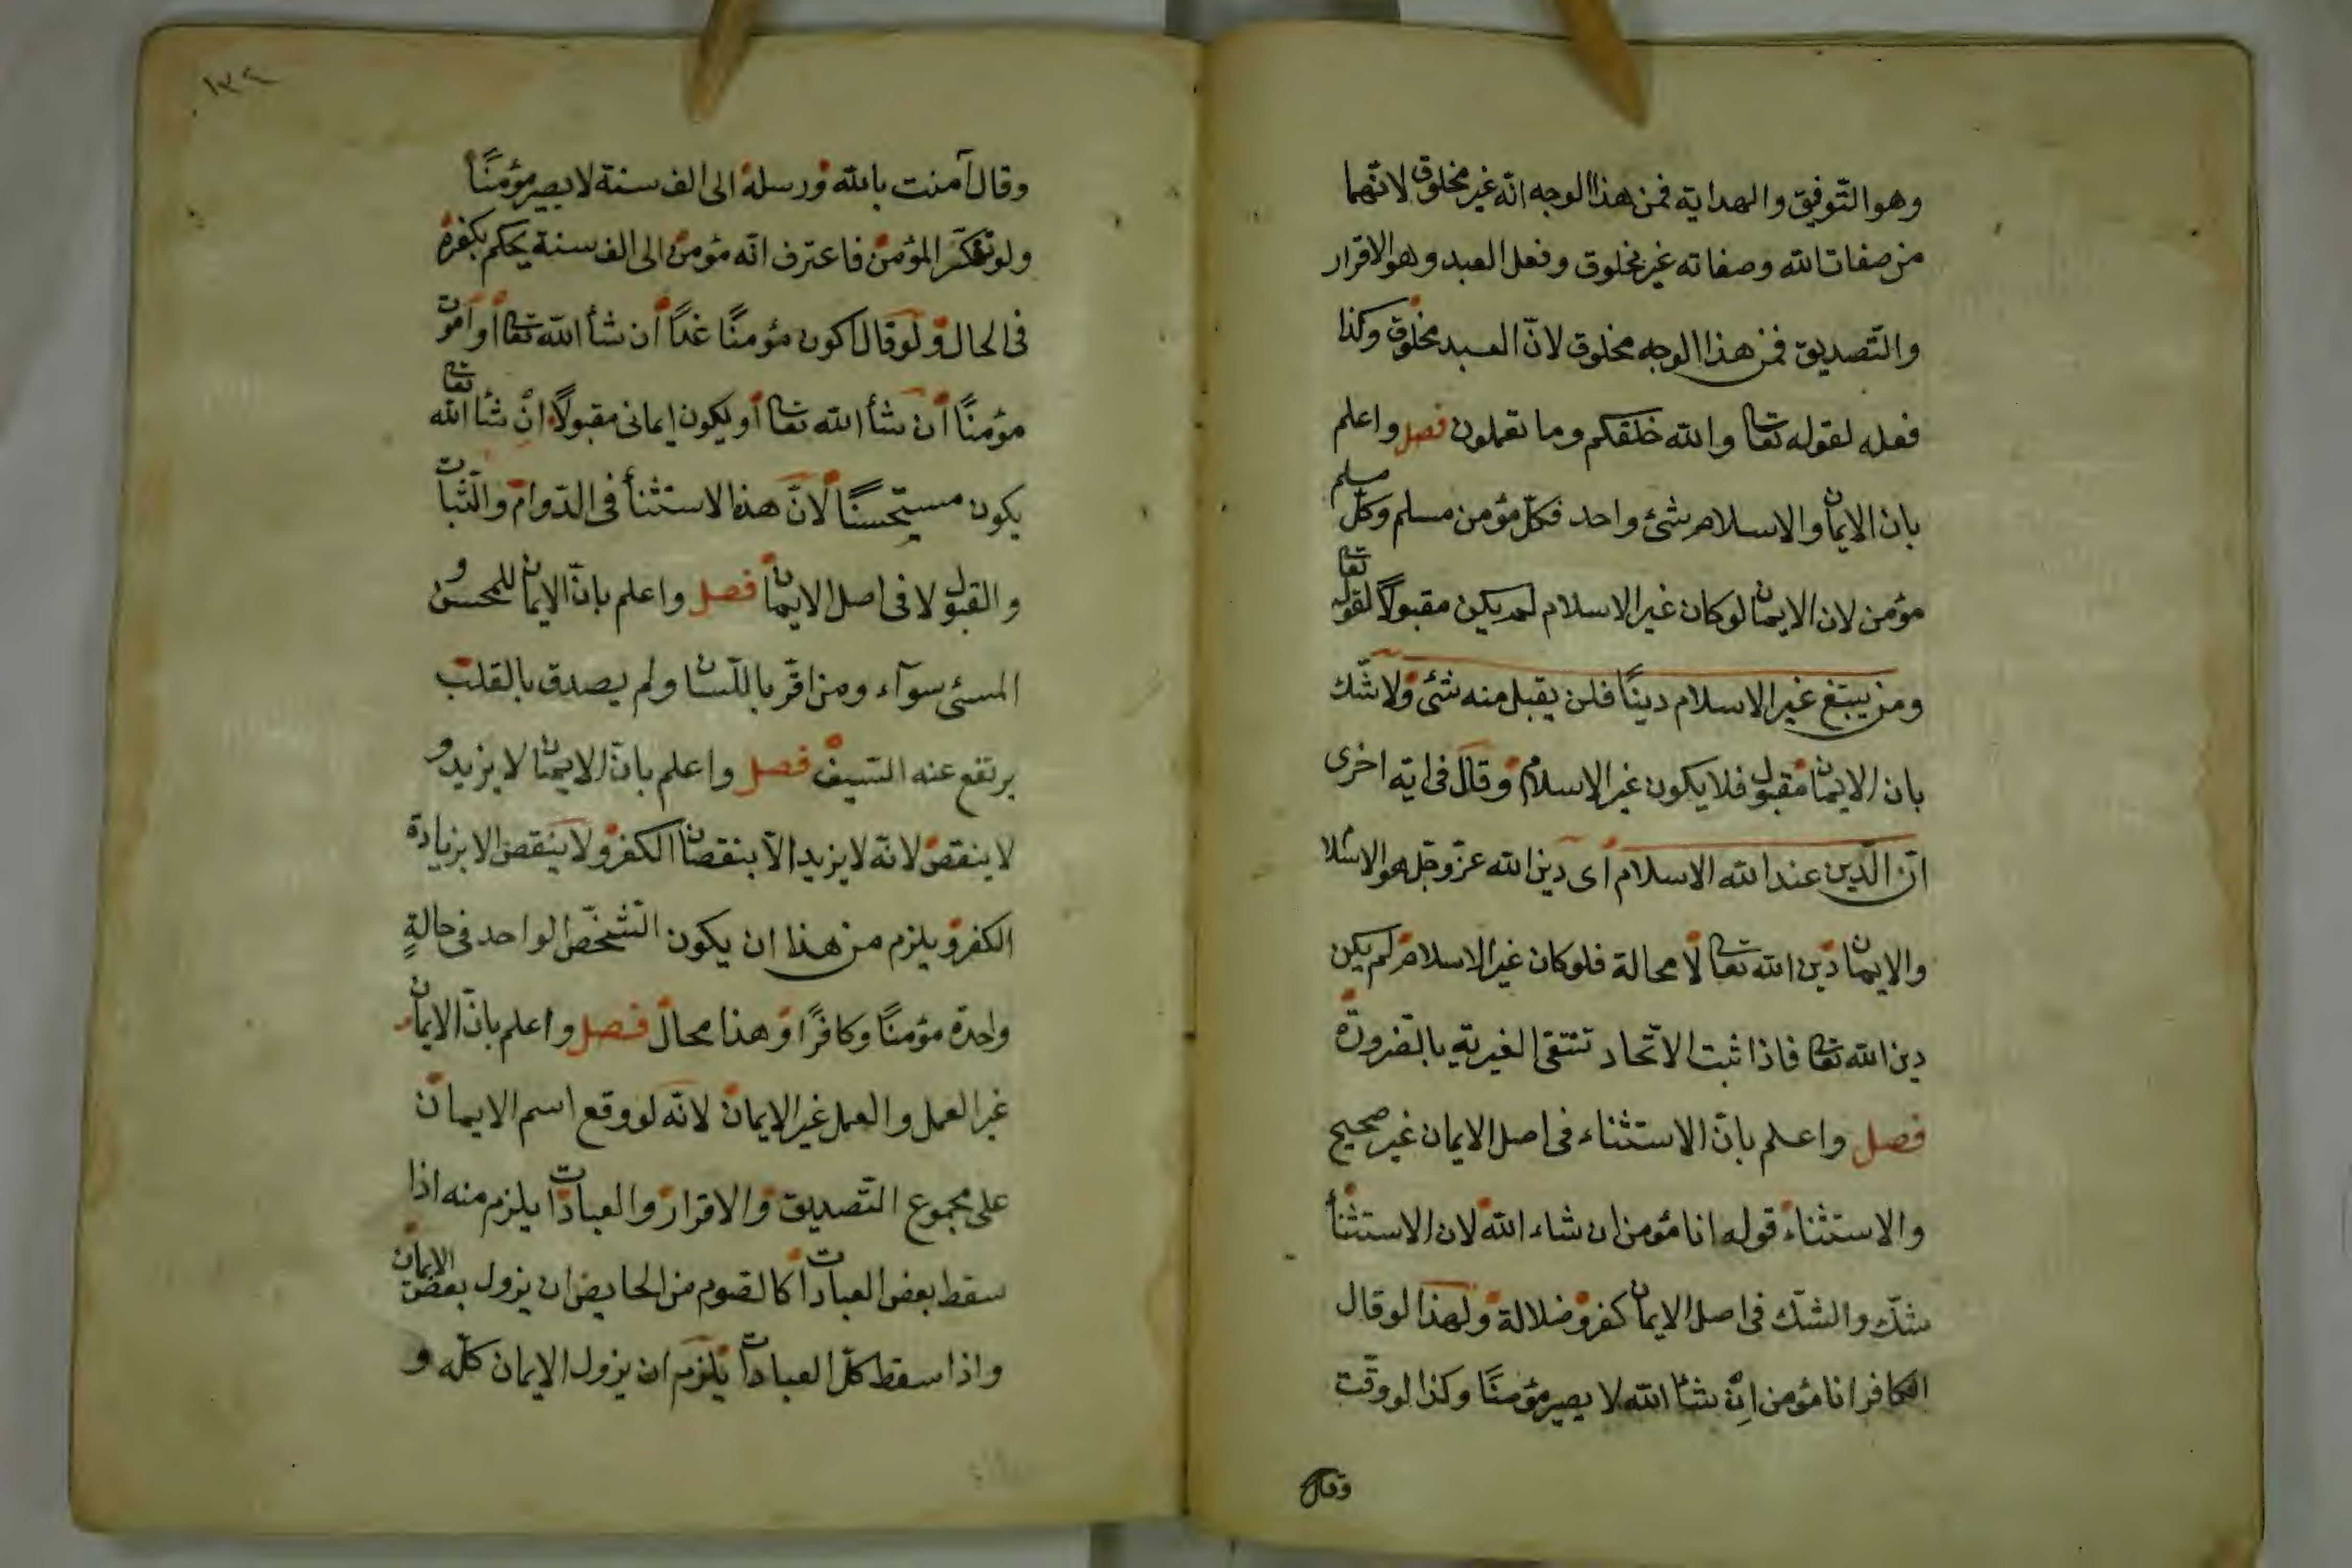 وهو التّوفيق والهداية فمن هذا الوجه انّه غير مخلوق لانّهما
من صفات الله وصفاته غير مخلوق وفعل العبد وهو الاقرار
والتّصديق فمن هذا الوجه مخلوق لانّ العبد مخلوق وكذا
فعله لقوله تعا والله خلقكم وما تعملون فصل واعلم
بان الايمان والاسلام شئ واحد فكلّ مؤمن مسلم وكلّ مسلم
مؤمن لان الايمان لو كان غير الاسلام لم يكن مقبولاً لقوله تعا
ومن يبتغ غير الاسلام دينًا فلن يقبل منه شئ ولا شّك
بان الايمان مقبول فلا يكون غير الاسلام وقال فى اية اخرى
انّ الدّين عند الله الاسلام اى دين الله عزّ وجّل هو الاسلا
والايمان دين الله تعا لا محالة فلو كان غير الاسلام لم يكن
دين الله تعا فاذا ثبت الاتّحاد تنتفى الغيرية بالضّرورة
فصل واعلم بانّ الاستثناء فى اصل الايمان غير صحيح
والاستثناء قوله انا مؤمن ان شاء الله لان الاستثنأ
شّك والشّك فى اصل الايمان كفر وضلالة ولهذا لو قال
الكافر انا مؤمن اِنْ شأ الله لا يصير مؤمنًا وكذا لو وقّت
وقال
١٣٩
وقال آمنت بالله ورسله الى الف سنة لا يصير مؤمنًا
ولو المؤمن فاعترف انّه مؤمن الى الف سنة يحكم بكفره
فى الحال ولو قال اكون مؤمنًا غدًا ان شأ الله تعا او اموت
مؤمنًا ان شأ الله تعا او يكون ايمانى مقبولاً ان شأ الله تعا
يكون مستحسنًا لانّ هذا الاستثنأ فى الدّوام والثّبات
والقبول لا فى اصل الايمان فصل واعلم بانّ الايمان للمحسن و
المسئ سوآء ومن اقرّ باللّسان ولم يصدق بالقلب
يرتفع عنه السّيف فصل واعلم بانّ الايمان لا يزيد و
لا ينقص لانّه لا يزيد الاّ بنقصان الكفر ولا ينقص الا بزيادة
الكفر ويلزم من هذا ان يكون الشّخص الواحد فى حالةٍ
واحدة مؤمنًا وكافرًا وهذا محال فصل واعلم بانّ الايمان
غير العمل والعمل غير الايمان لانّه لو وقع اسم الايمان
على مجموع التّصديق والاقرار والعبادات يلزم منه اذا
سقط بعض العبادات كالصّوم من الحايض ان يزول بعض الايمان
واذا سقط كلّ العبادات يلزم ان يزول الايمان كلّه و